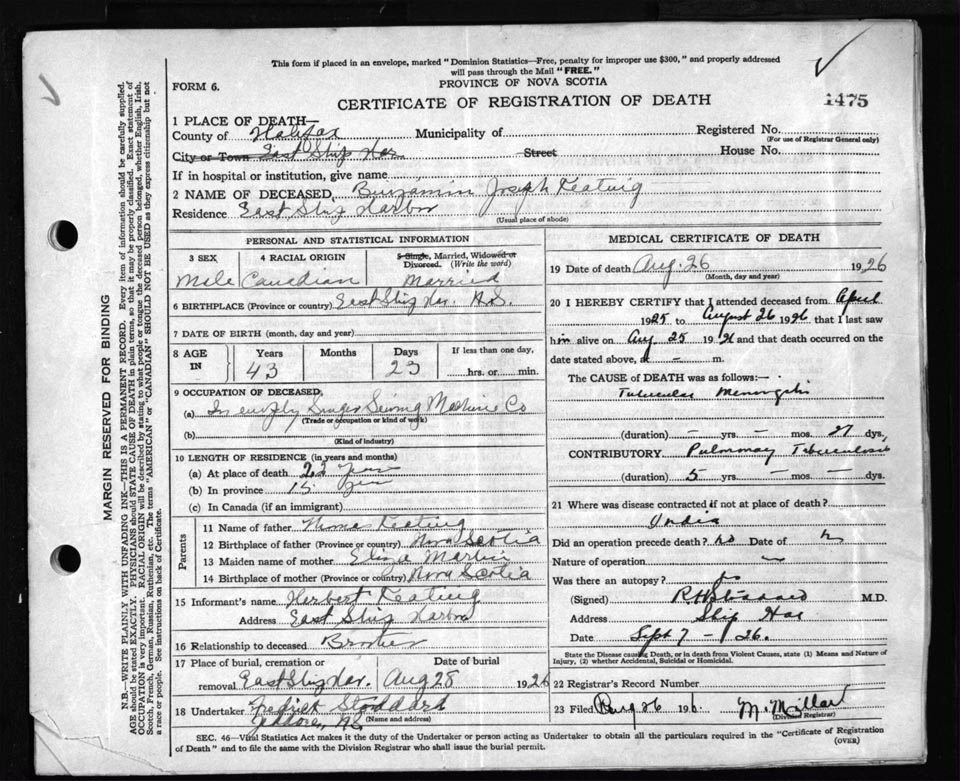 This form if placed in an envelope, marked "Dominion Statistics—Free, penalty for improper use $300," and properly addressed
will pass through the Mail "FREE."
FORM 6.
PROVINCE OF NOVA SCOTIA
CERTIFICATE OF REGISTRATION OF DEATH
1475
1 PLACE OF DEATH—
County of Halifax Municipality of Registered No.
(For use of Registrar General only)
City or Town East Ship Har Street House No.
If in hospital or institution, give name
2 NAME OF DECEASED, Benjamin Joseph Keating
Residence East Ship Harbor
(Usual place of abode)
PERSONAL AND STATISTICAL INFORMATION
3 SEX 4 RACIAL ORIGIN 5 Single, Married, Widowed or
Divorced. (Write the word)
Male Canadian Married
6 BIRTHPLACE (Province or country) East Ship Har. N.S.
7 DATE OF BIRTH (month, day and year)
8 AGE IN Years Months Days If less than one day,
43 23 hrs. or min.
9 OCCUPATION OF DECEASED,
(a) In employ Singer Sewing Machine Co
(Trade or occupation or kind of work)
(b)
(Kind of industry)
10 LENGTH OF RESIDENCE (in years and months)
(a) At place of death
(b) In province 15
(c) In Canada (if an immigrant)
Parents
11 Name of father Keating
12 Birthplace of father (Province or country) Nova Scotia
13 Maiden name of mother Martin
14 Birthplace of mother (Province or country) Nova Scotia
15 Informant's name Herbert Keating
Address East Ship Harbor
16 Relationship to deceased Brother
17 Place of burial, cremation or Date of burial
removal East Ship Har. Aug 28 1926
18 Undertaker Stoddard
Jeddore, NS (Name and address)
MEDICAL CERTIFICATE OF DEATH
19 Date of death Aug. 26 1926
(Month, day and year)
20 I HEREBY CERTIFY that I attended deceased from April
1925 to August 26 1926 that I last saw
him alive on Aug 25 19 and that death occurred on the
date stated above, at – m.
The CAUSE OF DEATH was as follows:—
Tubercular Meningitis
(duration) – yrs. – mos. 21 dys.
CONTRIBUTORY Pulmonary Tuberculosis
(duration) 5 yrs. – mos. dys.
21 Where was disease contracted if not at place of death?
India
Did an operation precede death? no Date of
Nature of operation
Was there an autopsy?
(Signed) M.D.
Address Ship Har
Date Sept 7 – 26.
State the Disease causing Death, or in death from Violent Causes, state (1) Means and Nature of
Injury, (2) whether Accidental, Suicidal or Homicidal.
22 Registrar's Record Number
23 Filed Aug 26 192 M. Millar
(Division Registrar)
SEC. 46—Vital Statistics Act makes it the duty of the Undertaker or person acting as Undertaker to obtain all the particulars required in the "Certificate of Registration
of Death" and to file the same with the Division Registrar who shall issue the burial permit.
(OVER)
MARGIN RESERVED FOR BINDING
N.B.—WRITE PLAINLY WITH UNFADING INK—THIS IS A PERMANENT RECORD. Every item of information should be carefully supplied.
AGE should be stated EXACTLY. PHYSICIANS should STATE CAUSE OF DEATH in plain terms, so that it may be properly classified. Exact statement of
OCCUPATION is very important. RACIAL ORIGIN will be described by stating to what people or tongue the deceased person belonged, whether English, Irish,
Scotch, French, German, Russian, Ruthenian, etc. The terms "AMERICAN" or "CANADIAN" SHOULD NOT BE USED as they express citizenship but not
a race or people. See instructions on back of Certificate.